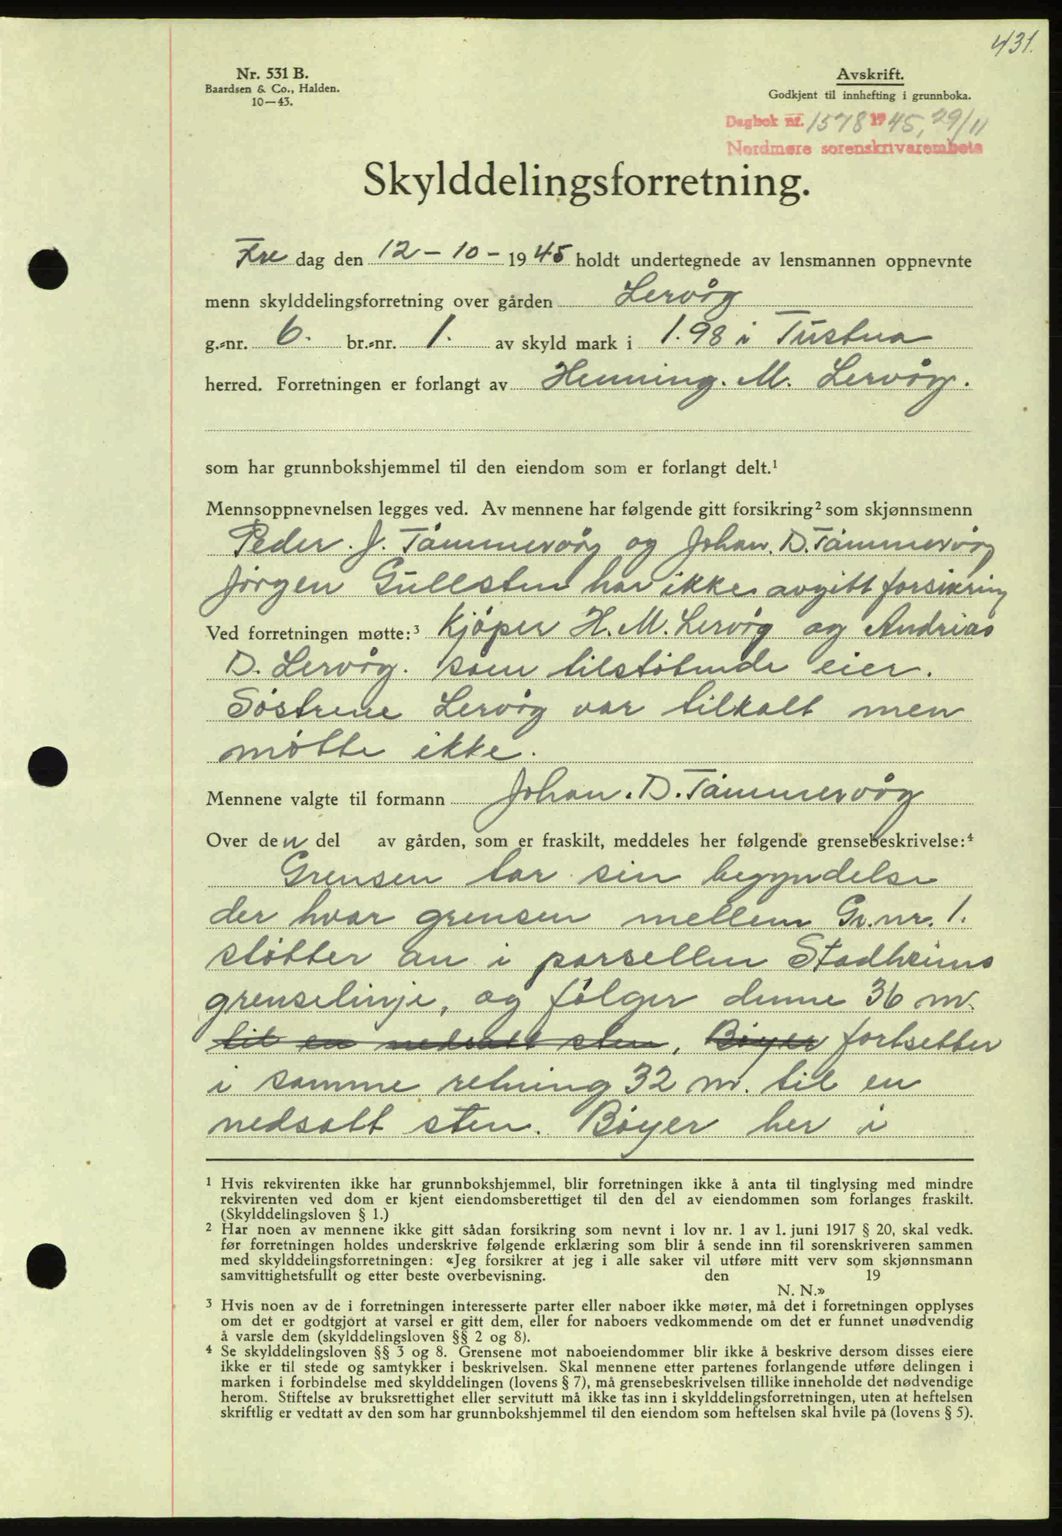 431.
Nr. 531 B.
Baardsen & Co., Halden.
10—43.
Avskrift.
Godkjent til innhefting i grunnboka.
Dagbok nr. 1578 1945, 29/11
Nordmøre sorenskriverembete
Skylddelingsforretning.
Fre dag den 12 – 10 – 1945 holdt undertegnede av lensmannen oppnevnte
menn skylddelingsforretning over gården Lervåg
g.-nr. 6. br.-nr. 1. av skyld mark i 1.98 i Tustna
herred. Forretningen er forlangt av Henning. M. Lervåg.
som har grunnbokshjemmel til den eiendom som er forlangt delt.¹
Mennsoppnevnelsen legges ved. Av mennene har følgende gitt forsikring² som skjønnsmenn
Peder. J. Tømmervåg og Johan. D. Tømmervåg
Jørgen Gullsten har ikke avgitt forsikring
Ved forretningen møtte:³ Kjøper H. M. Lervåg og Andrias
D. Lervåg. som tilstøtende eier.
Søstrene Lervåg var tilkalt men
møtte ikke.
Mennene valgte til formann Johan. D. Tømmervåg
Over den del av gården, som er fraskilt, meddeles her følgende grensebeskrivelse:⁴
Grensen tar sin begyndelse
der hvor grensen mellem Gr. nr. 1.
støtter an i parsellen Stadheims
grenselinje, og følger denne 36 m.
til en nedsatt sten, Bøyer fortsetter
i samme retning 32 m. til en
nedsatt sten. Bøyer her i
¹ Hvis rekvirenten ikke har grunnbokshjemmel, blir forretningen ikke å anta til tinglysing med mindre
rekvirenten ved dom er kjent eiendomsberettiget til den del av eiendommen som forlanges fraskilt.
(Skylddelingsloven § 1.)
² Har noen av mennene ikke gitt sådan forsikring som nevnt i lov nr. 1 av 1. juni 1917 § 20, skal vedk.
før forretningen holdes underskrive følgende erklæring som blir å sende inn til sorenskriveren sammen
med skylddelingsforretningen: «Jeg forsikrer at jeg i alle saker vil utføre mitt verv som skjønnsmann
samvittighetsfullt og etter beste overbevisning. den 19
N. N.»
³ Hvis noen av de i forretningen interesserte parter eller naboer ikke møter, må det i forretningen opplyses
om det er godtgjort at varsel er gitt dem, eller for naboers vedkommende om det er funnet unødvendig
å varsle dem (skylddelingsloven §§ 2 og 8).
⁴ Se skylddelingsloven §§ 3 og 8. Grensene mot naboeiendommer blir ikke å beskrive dersom disses eiere
ikke er til stede og samtykker i beskrivelsen. Skal mennene etter partenes forlangende utføre delingen i
marken i forbindelse med skylddelingen (lovens § 7), må grensebeskrivelsen tillike inneholde det nødvendige
herom. Stiftelse av bruksrettighet eller servitutt må ikke tas inn i skylddelingsforretningen, uten at heftelsen
skriftlig er vedtatt av den som har grunnbokshjemmel til den eiendom som heftelsen skal hvile på (lovens § 5).